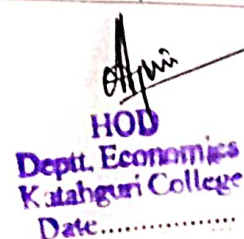 HOD
Deptt. Economics
Katahguri College
Date.................